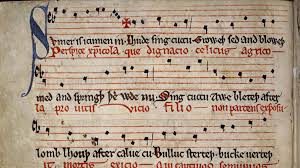 Svmer is icumen in· Lhude sing cuccu· Groweþ sed and bloweþ
Perspice xp̄icola que dignacio celicus agrico
med and springþ þe wde nu· Sing cuccu Awe bleteþ after
la pro uitis uicio filio non parcens exposu
lomb lhouþ after calue cu· Bulluc sterteþ bucke uerteþ
mortis exicio semiuiuos